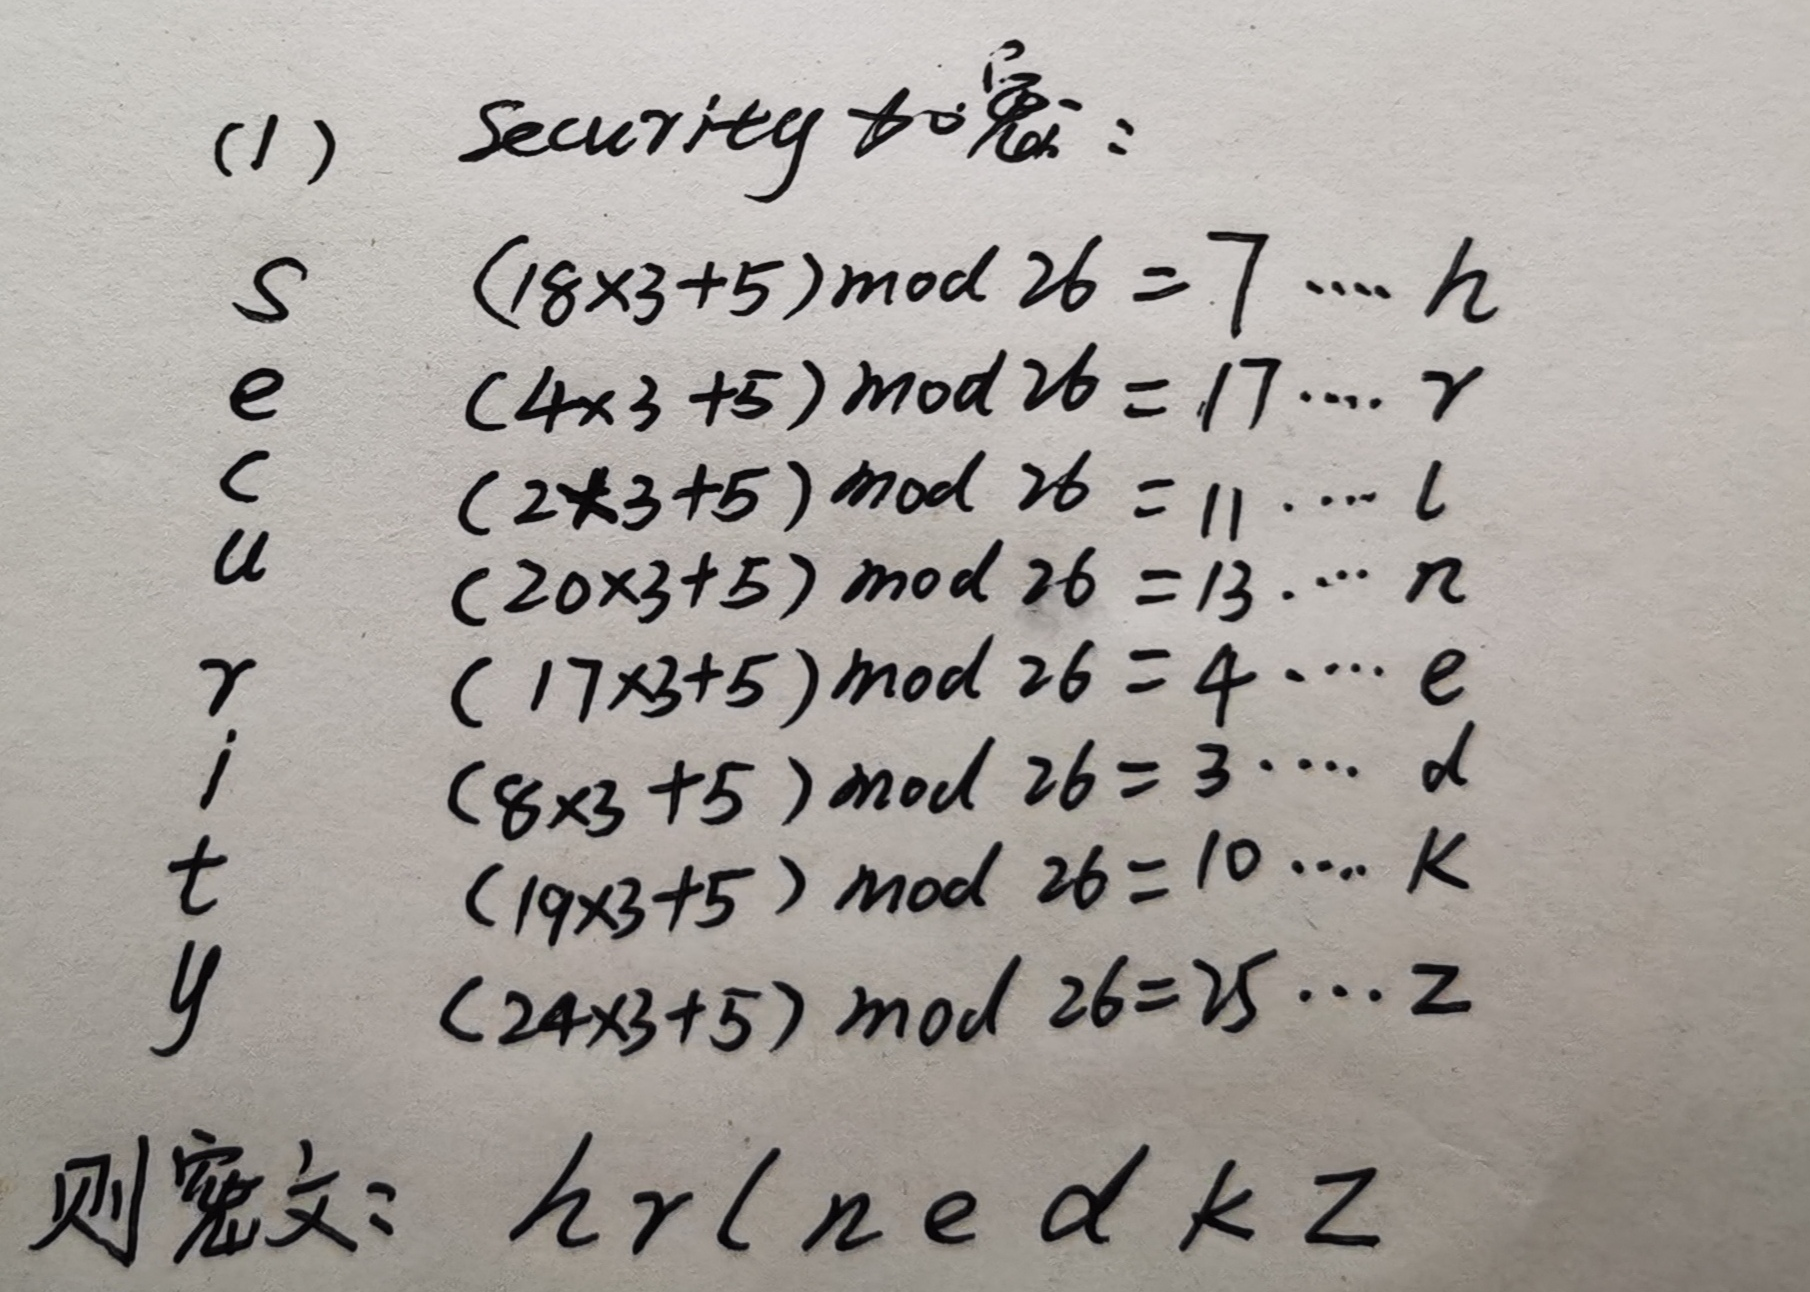 (1) Security 加密:
s (18×3+5) mod 26 = 7 .... h
e (4×3+5) mod 26 = 17 .... r
c (2×3+5) mod 26 = 11 .... l
u (20×3+5) mod 26 = 13 .... n
r (17×3+5) mod 26 = 4 .... e
i (8×3+5) mod 26 = 3 .... d
t (19×3+5) mod 26 = 10 .... k
y (24×3+5) mod 26 = 25 ... z
则密文: h r l n e d k z